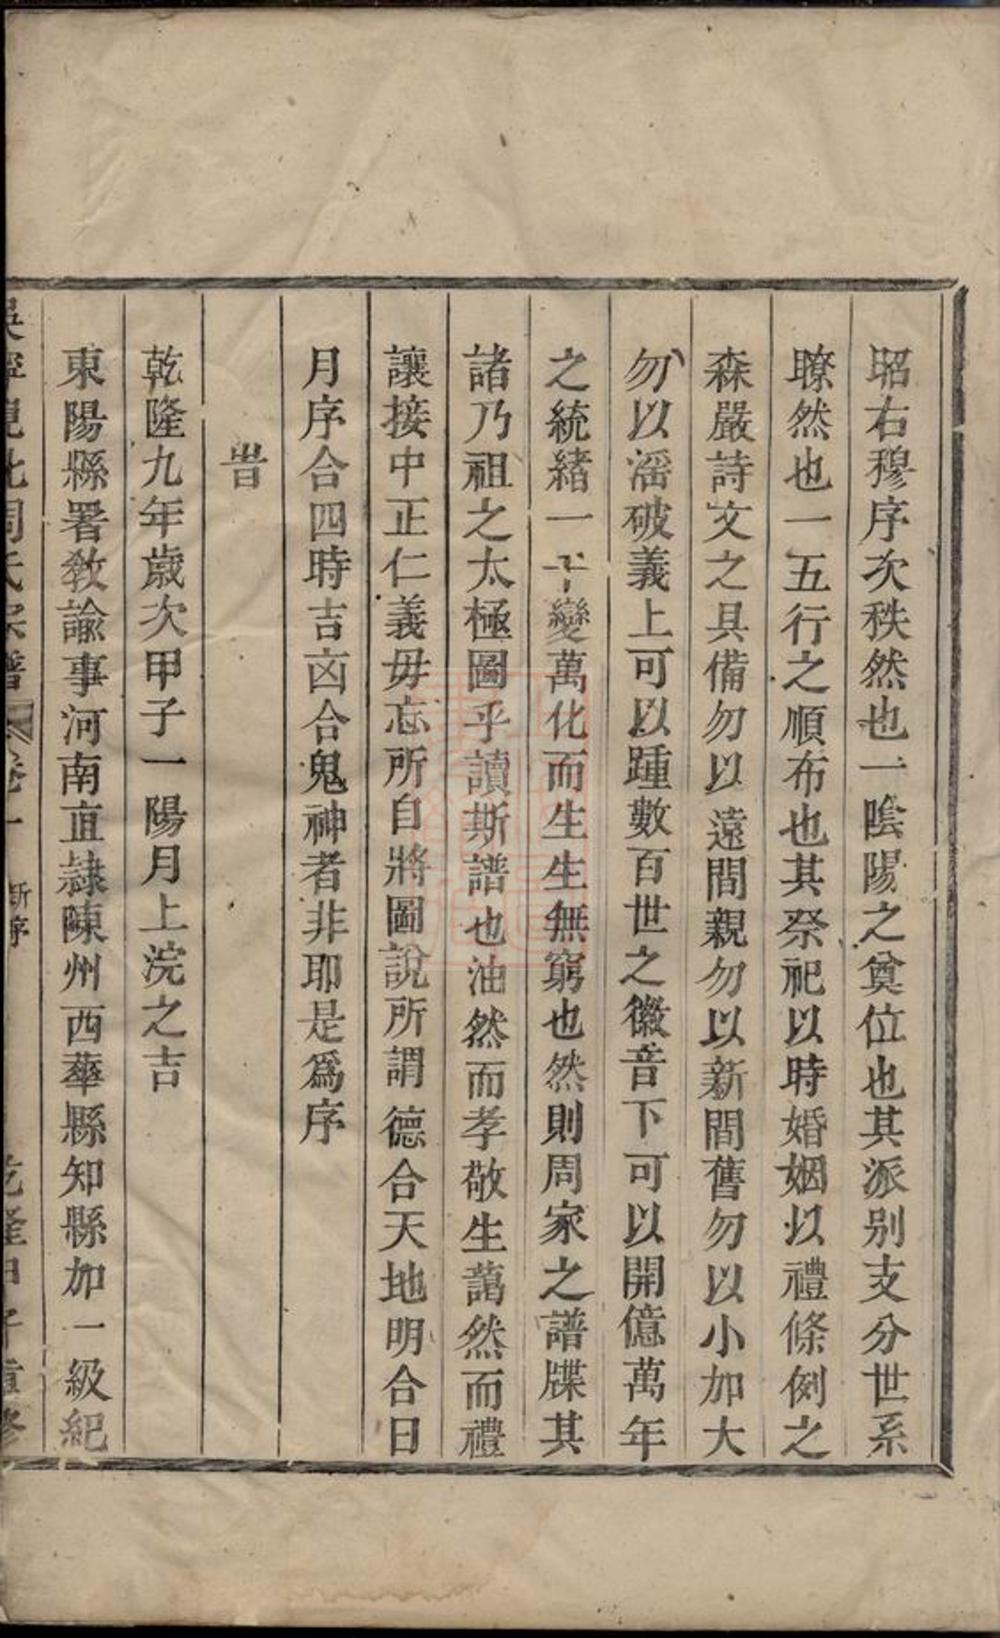 昭右穆序次秩然也一陰陽之奠位也其派别支分世系
瞭然也一五行之順布也其祭祀以時婚姻以禮條例之
森嚴詩文之具備勿以遠間親勿以新間舊勿以小加大
勿以滛破義上可以踵數百世之徽音下可以開億萬年
之統緒一千變萬化而生生無窮也然則周家之譜牒其
諸乃祖之太極圖乎讀斯譜也油然而孝敬生藹然而禮
讓接中正仁義毋忘所自將圖說所謂德合天地明合日
月序合四時吉凶合鬼神者非耶是為序
旹
乾隆九年歲次甲子一陽月上浣之吉
東陽縣署教諭事河南直隸陳州西華縣知縣加一級紀
吳寧峴北周氏宗譜 卷一 新序 乾隆甲子重修